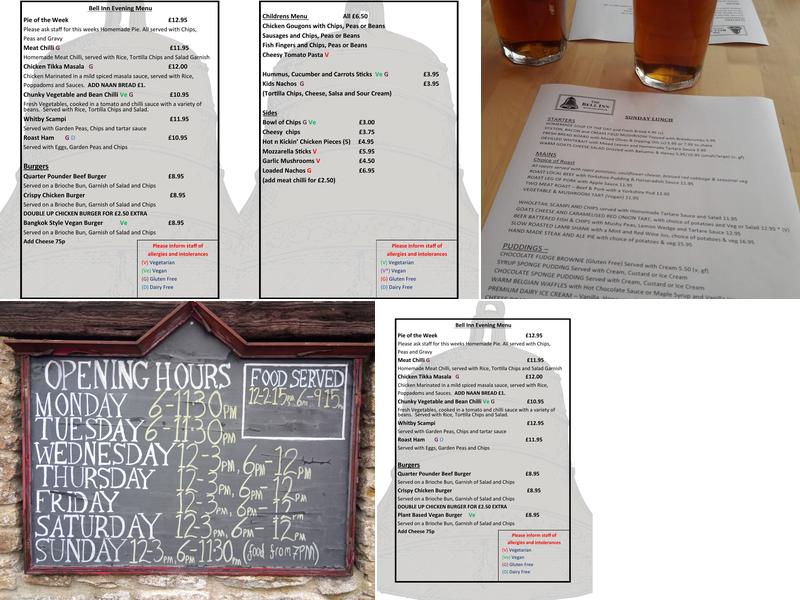 Bell Inn Evening Menu
Pie of the Week £12.95
Please ask staff for this weeks Homemade Pie. All served with Chips,
Peas and Gravy
Meat Chilli G £11.95
Homemade Meat Chilli, served with Rice, Tortilla Chips and Salad Garnish
Chicken Tikka Masala G £12.00
Chicken Marinated in a mild spiced masala sauce, served with Rice,
Poppadoms and Sauces. ADD NAAN BREAD £1.
Chunky Vegetable and Bean Chilli Ve G £10.95
Fresh Vegetables, cooked in a tomato and chilli sauce with a variety of
beans. Served with Rice, Tortilla Chips and Salad.
Whitby Scampi £11.95
Served with Garden Peas, Chips and tartar sauce
Roast Ham G D £10.95
Served with Eggs, Garden Peas and Chips
Burgers
Quarter Pounder Beef Burger £8.95
Served on a Brioche Bun, Garnish of Salad and Chips
Crispy Chicken Burger £8.95
Served on a Brioche Bun, Garnish of Salad and Chips
DOUBLE UP CHICKEN BURGER FOR £2.50 EXTRA
Bangkok Style Vegan Burger Ve £8.95
Served on a Brioche Bun, Garnish of Salad and Chips
Add Cheese 75p
Please inform staff of
allergies and intolerances
(V) Vegetarian
(Ve) Vegan
(G) Gluten Free
(D) Dairy Free
Childrens Menu All £6.50
Chicken Gougons with Chips, Peas or Beans
Sausages and Chips, Peas or Beans
Fish Fingers and Chips, Peas or Beans
Cheesy Tomato Pasta V
Hummus, Cucumber and Carrots Sticks Ve G £3.95
Kids Nachos G £3.95
(Tortilla Chips, Cheese, Salsa and Sour Cream)
Sides
Bowl of Chips G Ve £3.00
Cheesy chips £3.75
Hot n Kickin' Chicken Pieces (5) £4.95
Mozzarella Sticks V £5.95
Garlic Mushrooms V £4.50
Loaded Nachos G £6.95
(add meat chilli for £2.50)
Please inform staff of
allergies and intolerances
(V) Vegetarian
(V*) Vegan
(G) Gluten Free
(D) Dairy Free
THE
BELL INN
SUNDAY LUNCH
STARTERS
HOMEMADE SOUP OF THE DAY and Fresh Bread
MAINS
Choice of Roast
ROAST LOCAL BEEF with Yorkshire Pudding & Horseradish Sauce
ROAST LEG OF PORK with Apple Sauce
TWO MEAT ROAST – Beef & Pork with a Yorkshire Pud
VEGETABLE & MUSHROOM TART (Vegan)
WHOLETAIL SCAMPI AND CHIPS served with Homemade Tartare Sauce and Salad
GOATS CHEESE AND CARAMELISED RED ONION TART, with choice of potatoes and Veg or Salad
BEER BATTERED FISH & CHIPS with Mushy Peas, Lemon Wedge and Tartare Sauce
SLOW ROASTED LAMB SHANK with a Mint and Red Wine Jus, choice of potatoes & veg
HAND MADE STEAK AND ALE PIE with choice of potatoes & veg
PUDDINGS –
CHOCOLATE FUDGE BROWNIE (Gluten Free) Served with Cream 5.50 (v, gf)
SYRUP SPONGE PUDDING Served with Cream, Custard or Ice Cream
CHOCOLATE SPONGE PUDDING Served with Cream, Custard or Ice Cream
WARM BELGIAN WAFFLES with Hot Chocolate Sauce or Maple Syrup and
PREMIUM DAIRY ICE CREAM – Vanilla,
OPENING HOURS
MONDAY 6-1130PM
TUESDAY 6-1130PM
WEDNESDAY 12-3PM, 6PM-12PM
THURSDAY 12-3PM, 6PM-12PM
FRIDAY 12-3PM, 6PM-12PM
SATURDAY 12-3PM, 6PM-12PM
SUNDAY 12-3PM, 6PM-1130PM (food from 7PM)
FOOD SERVED
12-2·15PM, 6PM-9·15PM
Bell Inn Evening Menu
Pie of the Week £12.95
Please ask staff for this weeks Homemade Pie. All served with Chips,
Peas and Gravy
Meat Chilli G £11.95
Homemade Meat Chilli, served with Rice, Tortilla Chips and Salad Garnish
Chicken Tikka Masala G £12.00
Chicken Marinated in a mild spiced masala sauce, served with Rice,
Poppadoms and Sauces. ADD NAAN BREAD £1.
Chunky Vegetable and Bean Chilli Ve G £10.95
Fresh Vegetables, cooked in a tomato and chilli sauce with a variety of
beans. Served with Rice, Tortilla Chips and Salad.
Whitby Scampi £12.95
Served with Garden Peas, Chips and tartar sauce
Roast Ham G D £11.95
Served with Eggs, Garden Peas and Chips
Burgers
Quarter Pounder Beef Burger £8.95
Served on a Brioche Bun, Garnish of Salad and Chips
Crispy Chicken Burger £8.95
Served on a Brioche Bun, Garnish of Salad and Chips
DOUBLE UP CHICKEN BURGER FOR £2.50 EXTRA
Plant Based Vegan Burger Ve £8.95
Served on a Brioche Bun, Garnish of Salad and Chips
Add Cheese 75p
Please inform staff of
allergies and intolerances
(V) Vegetarian
(Ve) Vegan
(G) Gluten Free
(D) Dairy Free